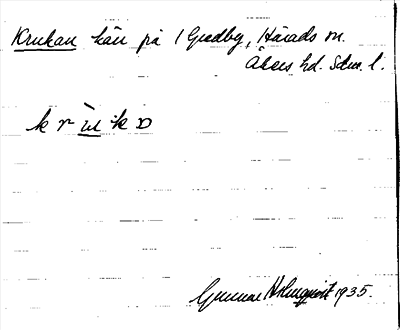 Krukan hän på 1 Gredby, Härads sn.
Åkers hd. Söm. l.
k r ù̱ ̇k ɒ
Gunnar Holmqvist 1935.